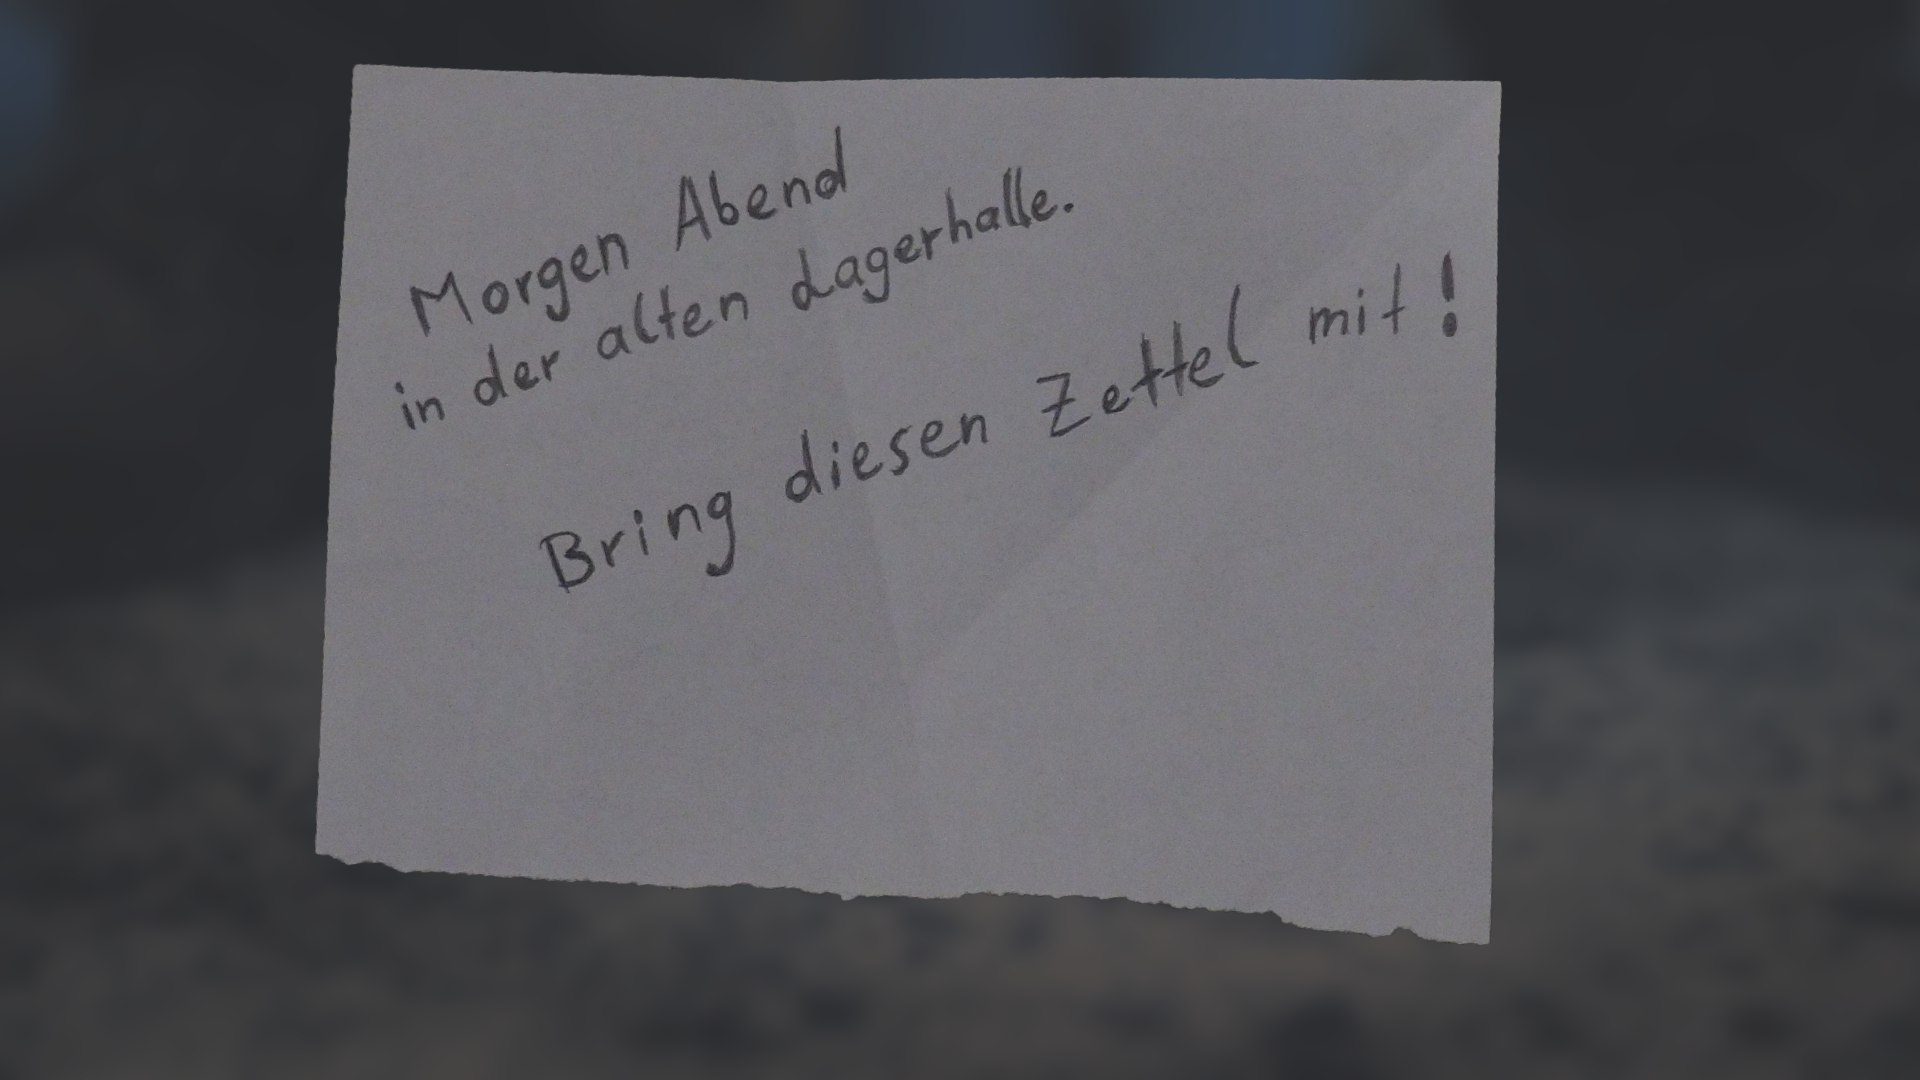 Morgen Abend
in der alten Lagerhalle.
Bring diesen Zettel mit!